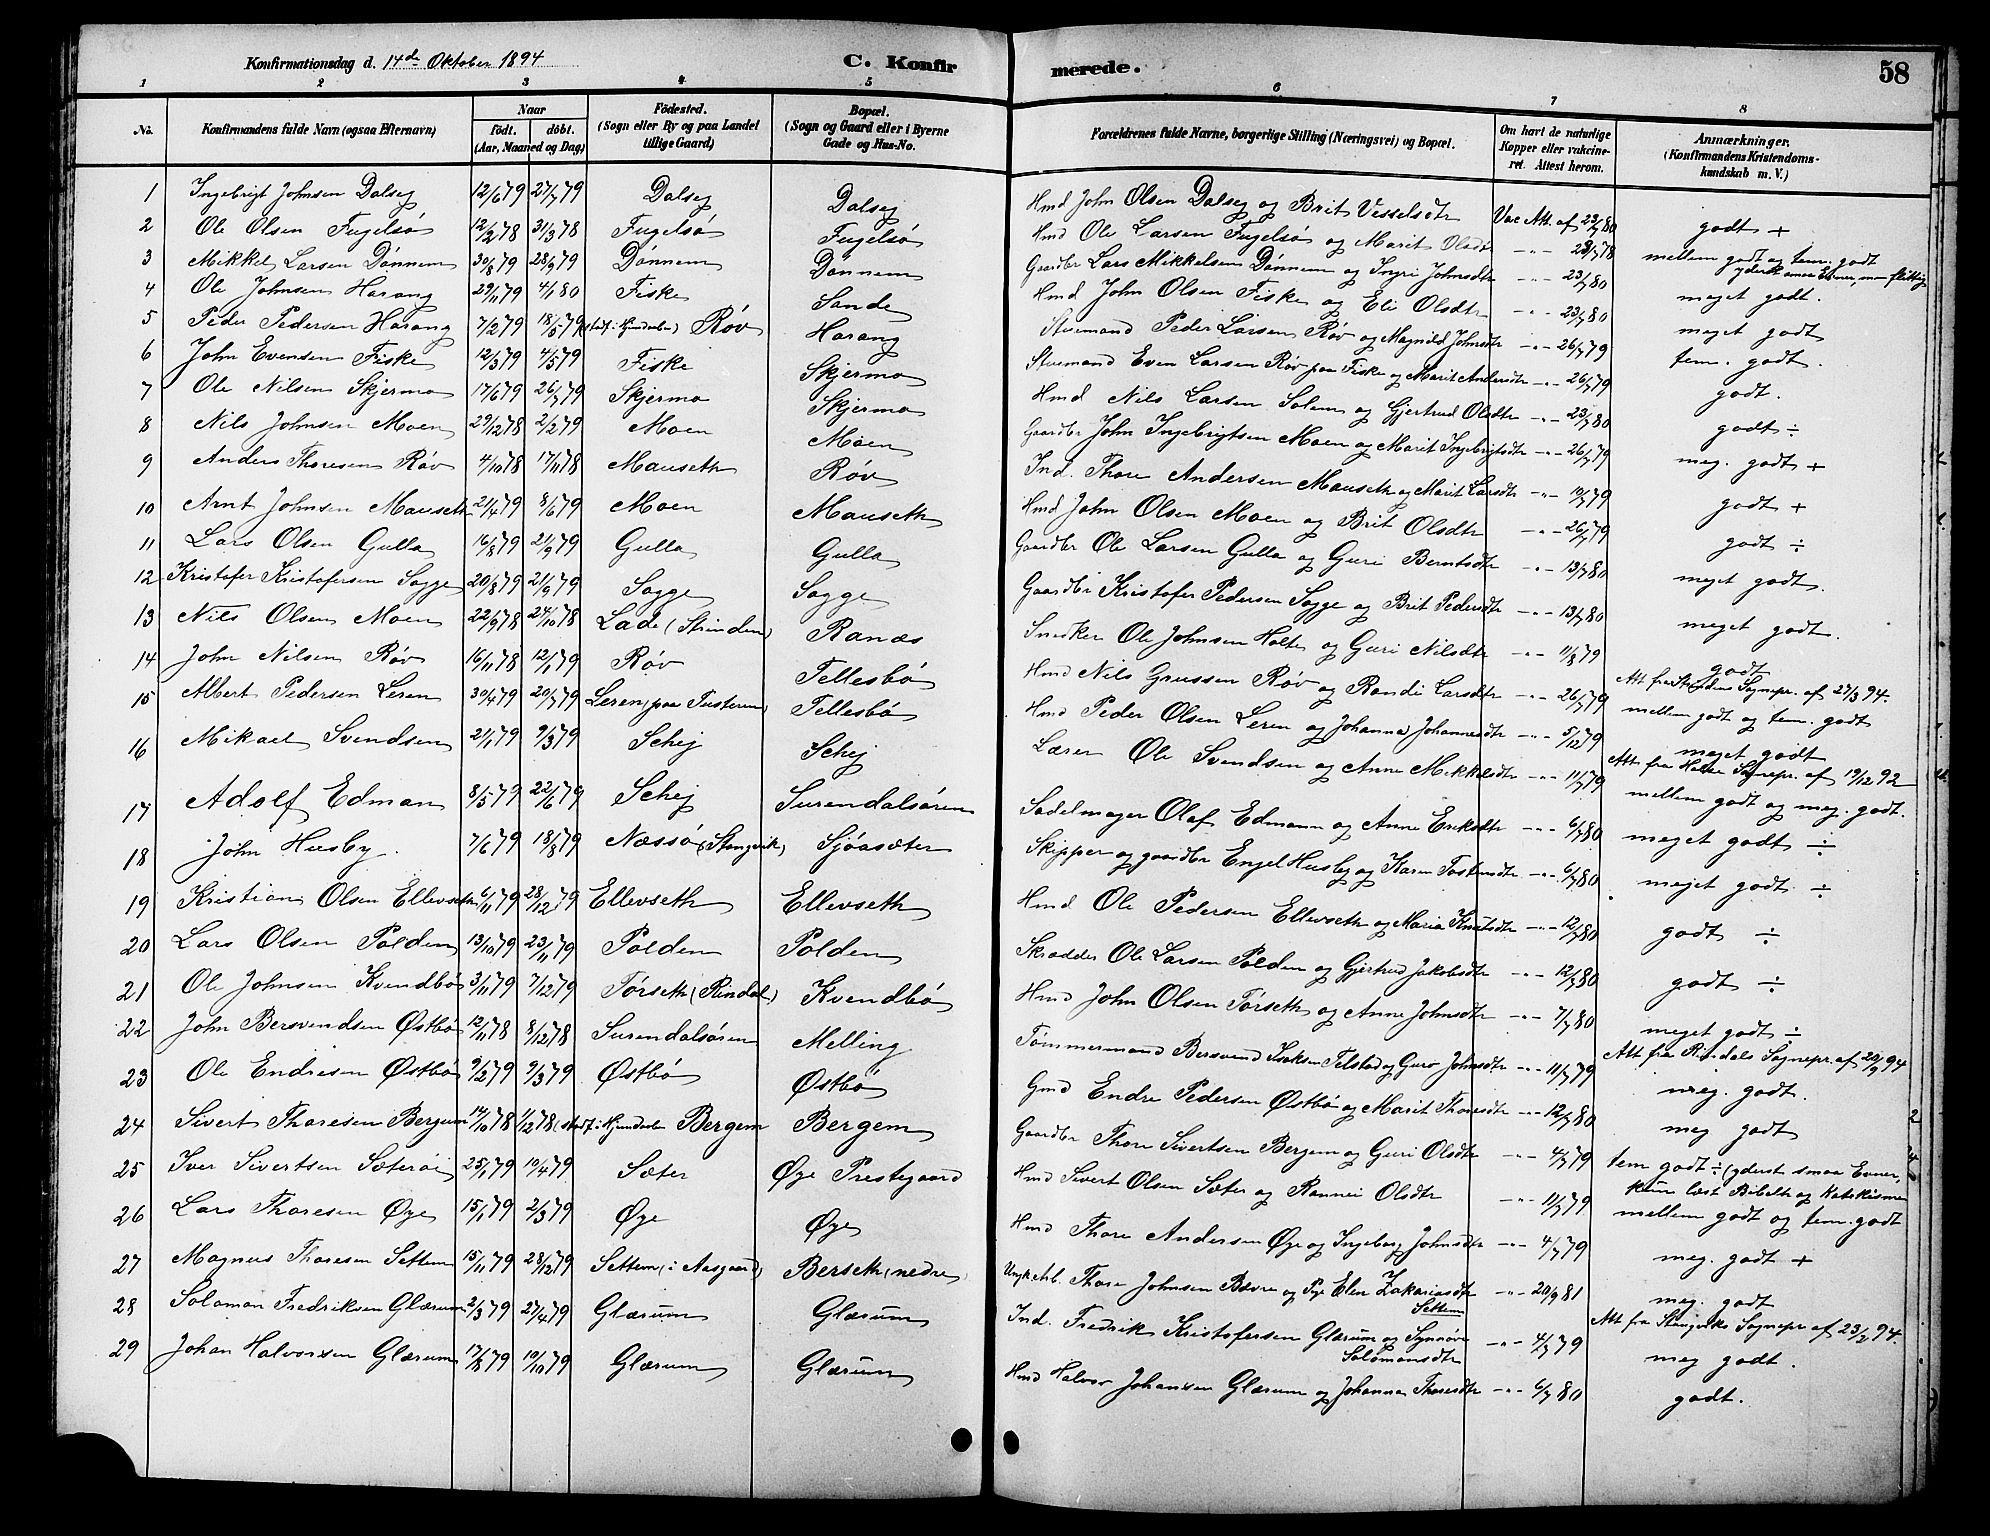 Konfirmationsdag d. 14de Oktober 1894
C. Konfir merede. 58
1 2 3 4 5 6 7 8
No. Konfirmandens fulde Navn (ogsaa Efternavn) Naar födt. döbt. (Aar, Maaned og Dag) Födested. (Sogn eller By og paa Landet tillige Gaard) Bopæl. (Sogn og Gaard eller i Byerne Gade og Hus-No. Forældrenes fulde Navne, borgerlige Stilling (Næringsvei) og Bopæl. Om havt de naturlige Kopper eller vakcineret. Attest herom. Anmærkninger. (Konfirmandens Kristendomskundskab m. V.)
1 Ingebrigt Johnsen Dalseg 12/6 79 27/7 79 Dalseg Dalseg Hmd John Olsen Dalseg og Brit Vesselsdtr Vac Att. af 23/7 80 godt +
2 Ole Olsen Fugelsö 12/2 78 31/3 78 Fugelsö Fugelsö Hmd Ole Larsen Fugelsö og Marit Olsdtr -"- 78 mellem godt og tem. godt
3 Mikkel Larsen Dönnem 30/8 79 28/9 79 Dönnem Dönnem Gaardbr Lars Mikkelsen Dönnem og Ingri Johnsdtr -"- 23/7 80 meget godt.
4 Ole Johnsen Harang 29/11 79 4/1 80 Fiske Sande Hmd John Olsen Fiske og Eli Olsdtr -"- 23/7 80 meget godt
5 Peder Pedersen Harang 7/2 79 18/5 79 Röv Harang Stuemand Peder Larsen Röv og Magnild Johnsdtr -"- 26/7 79 tem. godt.
6 John Evensen Fiske 12/3 79 4/5 79 Fiske Skjermo Stuemand Even Larsen Röv paa Fiske og Marit Andersdtr -"- 26/7 79 godt.
7 Ole Nilsen Skjermo 17/6 79 26/7 79 Skjermo Skjermo Hmd Nils Larsen Solem og Gjertrud Olsdtr -"- 23/7 80 godt ÷
8 Nils Johnsen Moen 29/12 78 2/2 79 Moen Moen Gaardbr John Ingebrigtsen Moen og Marit Ingebrigtsdtr -"- 26/7 79 meg. godt +
9 Anders Thoresen Röv 4/10 78 17/11 78 Mauseth Röv Ind. Thore Andersen Mauseth og Marit Larsdtr -"- 10/7 79 godt +
10 Arnt Johnsen Mauseth 21/4 79 8/6 79 Moen Mauseth Hmd John Olsen Moen og Brit Olsdtr -"- 26/7 79 godt ÷
11 Lars Olsen Gulla 16/8 79 21/9 79 Gulla Gulla Gaardbr Ole Larsen Gulla og Guri Berntsdtr -"- 13/7 80 meget godt.
12 Kristofer Kristofersen Sogge 20/8 79 21/9 79 Sogge Sogge Gaardbr Kristofer Pedersen Sogge og Brit Pedersdtr -"- 13/7 80 meget godt.
13 Nils Olsen Moen 22/9 78 24/10 78 Lade (Strinden) Ranæs Snedker Ole Johnsen Holte og Guri Nilsdtr -"- 11/8 79 godt Att fra Strindens Sognepr. af 27/3 94.
14 John Nilsen Röv 16/11 78 12/1 79 Röv Tellesbö Hmd Nils Grussen Röv og Randi Larsdtr -"- 26/7 79 mellem godt og tem. godt
15 Albert Pedersen Leren 30/4 79 20/7 79 Leren paa Tusteren Tellesbö Hmd Peder Olsen Leren og Johanna Johannesdtr -"- 5/12 79 meget godt Att fra Sognepr. af 19/12 92
16 Mikael Svendsen 21/1 79 9/3 79 Schej Schej Lærer Ole Svendsen og Anne Mikkelsdtr -"- 11/7 79 mellem godt og meg. godt.
17 Adolf Edman 8/5 79 22/6 79 Schej Surendalsören Sadelmager Olaf Edmann og Anne Eriksdtr -"- 6/7 80 meget godt ÷
18 John Husby 7/6 79 18/8 79 Næssö (Stangvik) Sjöasæter Skipper og gaardbr Engel Husby og Karen Tostensdtr -"- 6/7 80 meget godt ÷
19 Kristian Olsen Ellevseth 6/11 79 28/12 79 Ellevseth Ellevseth Hmd Ole Pedersen Ellevseth og Maria Knutsdtr -"- 12/7 80 godt ÷
20 Lars Olsen Polden 13/10 79 23/11 79 Polden Polden Skrædder Ole Larsen Polden og Gjertrud Jakobsdtr -"- 12/7 80 godt ÷
21 Ole Johnsen Kvendbö 3/11 79 7/12 79 Törseth (Rindal) Kvendbö Hmd John Olsen Törseth og Anne Johnsdtr -"- 7/7 80 meget godt ÷ Att fra Rindals Sognepr. af 20/9 94
22 John Bersvendsen Östbö 12/11 78 8/12 78 Surendalsören Melling Tömmermand Bersvend Isaksen Telstad og Guro Johnsdtr -"- 11/7 79 meg. godt.
23 Ole Endresen Östbö 9/2 79 9/3 79 Östbö Östbö Gmd Endre Pedersen Östbö og Marit Thoresdtr -"- 12/7 80 meg godt
24 Sivert Thoresen Bergem 14/10 78 1/12 78 Bergem Bergem Gaardbr Thore Sivertsen Bergem og Guri Olsdtr -"- 4/7 79 tem godt ÷ (yderst smaa Evner, kun læst Bibelh og Katekismen
25 Iver Sivertsen Sæteröi 25/1 79 10/4 79 Sæter Öye Prestegaard Hmd Sivert Olsen Sæter og Rannei Olsdtr -"- 11/7 79 mellem godt og tem. godt
26 Lars Thoresen Öye 15/1 79 2/3 79 Öye Öye Hmd Thore Andersen Öye og Ingeborg Johnsdtr -"- 4/7 79 meg. godt +
27 Magnus Thoresen Settem 15/11 79 28/12 79 Settem (i Aasgaard) Berseth (nedre) Ungk. Thore Johnsen Bævre og Pge Elen Zakariasdtr Settem -"- 20/9 81 meg. godt Att fra Stangviks Sognepr. af 23/2 94.
28 Soloman Fredriksen Glærum 2/3 79 27/4 79 Glærum Glærum Ind. Fredrik Kristofersen Glærum og Synnöve Solomansdtr -"- 4/7 79 meg godt.
29 Johan Halvorsen Glærum 17/8 79 19/10 79 Glærum Glærum Hmd Halvor Johansen Glærum og Johanna Thoresdtr -"- 6/7 80 godt.